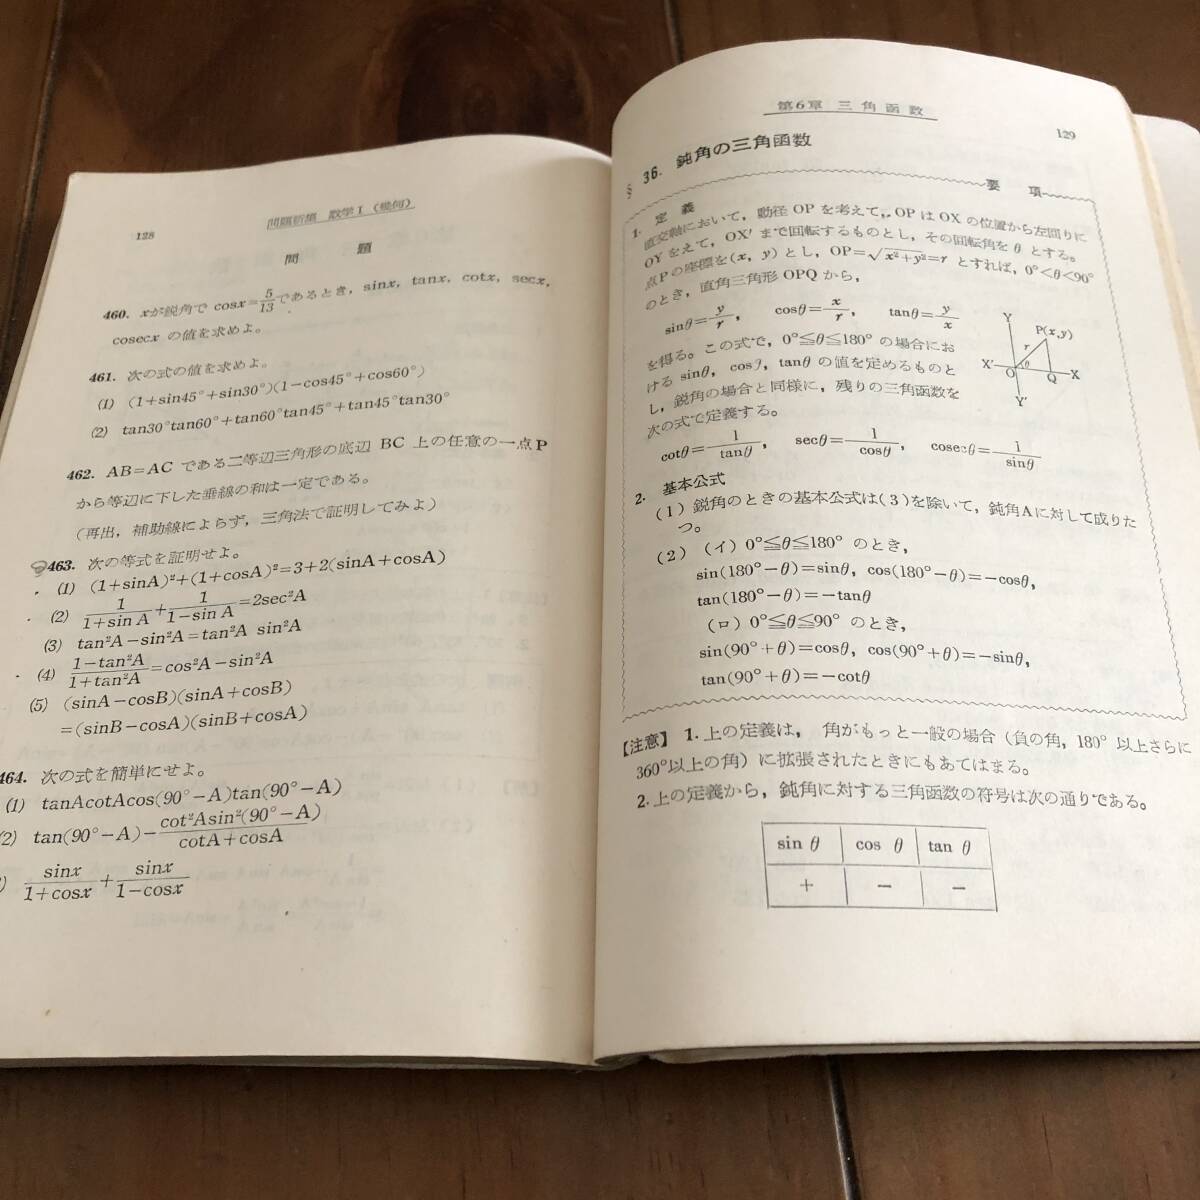 128
問題新集 数学Ⅰ（幾何）
問 題
460. xが鋭角で cosx=5/13であるとき，sinx，tanx，cotx，secx，
cosecx の値を求めよ。
461. 次の式の値を求めよ。
(1) (1+sin45°+sin30°)(1−cos45°+cos60°)
(2) tan30°tan60°+tan60°tan45°+tan45°tan30°
462. AB=AC である二等辺三角形の底辺 BC 上の任意の一点P
から等辺に下した垂線の和は一定である。
（再出，補助線によらず，三角法で証明してみよ）
463. 次の等式を証明せよ。
(1) (1+sinA)²+(1+cosA)²=3+2(sinA+cosA)
(2) 1/(1+sin A)+1/(1−sin A)=2sec²A
(3) tan²A−sin²A=tan²A sin²A
(4) (1−tan²A)/(1+tan²A)=cos²A−sin²A
(5) (sinA−cosB)(sinA+cosB)
=(sinB−cosA)(sinB+cosA)
464. 次の式を簡単にせよ。
(1) tanAcotAcos(90°−A)tan(90°−A)
(2) tan(90°−A)−cot²Asin²(90°−A)/(cotA+cosA)
) sinx/(1+cosx)+sinx/(1−cosx)
第6章 三角函数
129
§ 36. 鈍角の三角函数
要 項
1. 定 義
直交軸において，動径 OP を考えて，OP は OX の位置から左回りに
OY をえて，OX′ まで回転するものとし，その回転角を θ とする。
点P の座標を(x, y)とし，OP=√x²+y²=r とすれば，0°<θ<90°
のとき，直角三角形 OPQ から，
sinθ=y/r， cosθ=x/r， tanθ=y/x
を得る。この式で，0°≦θ≦180° の場合にお
ける sinθ，cosθ，tanθ の値を定めるものと
し，鋭角の場合と同様に，残りの三角函数を
次の式で定義する。
Y
P(x,y)
r
X′ O θ Q X
Y′
cotθ=1/tanθ， secθ=1/cosθ， cosecθ=1/sinθ
2. 基本公式
(1) 鋭角のときの基本公式は(3)を除いて，鈍角Aに対して成りた
つ。
(2) (イ) 0°≦θ≦180° のとき，
sin(180°−θ)=sinθ，cos(180°−θ)=−cosθ，
tan(180°−θ)=−tanθ
(ロ) 0°≦θ≦90° のとき，
sin(90°+θ)=cosθ，cos(90°+θ)=−sinθ，
tan(90°+θ)=−cotθ
【注意】 1. 上の定義は，角がもっと一般の場合（負の角，180° 以上さらに
360°以上の角）に拡張されたときにもあてはまる。
2. 上の定義から，鈍角に対する三角函数の符号は次の通りである。
sin θ cos θ tan θ
+ − −